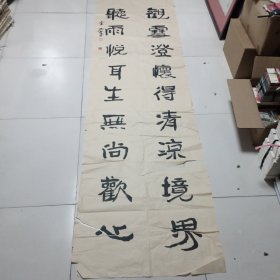 觀雪澄懷得清涼境界
聽雨悅耳生無尚歡心